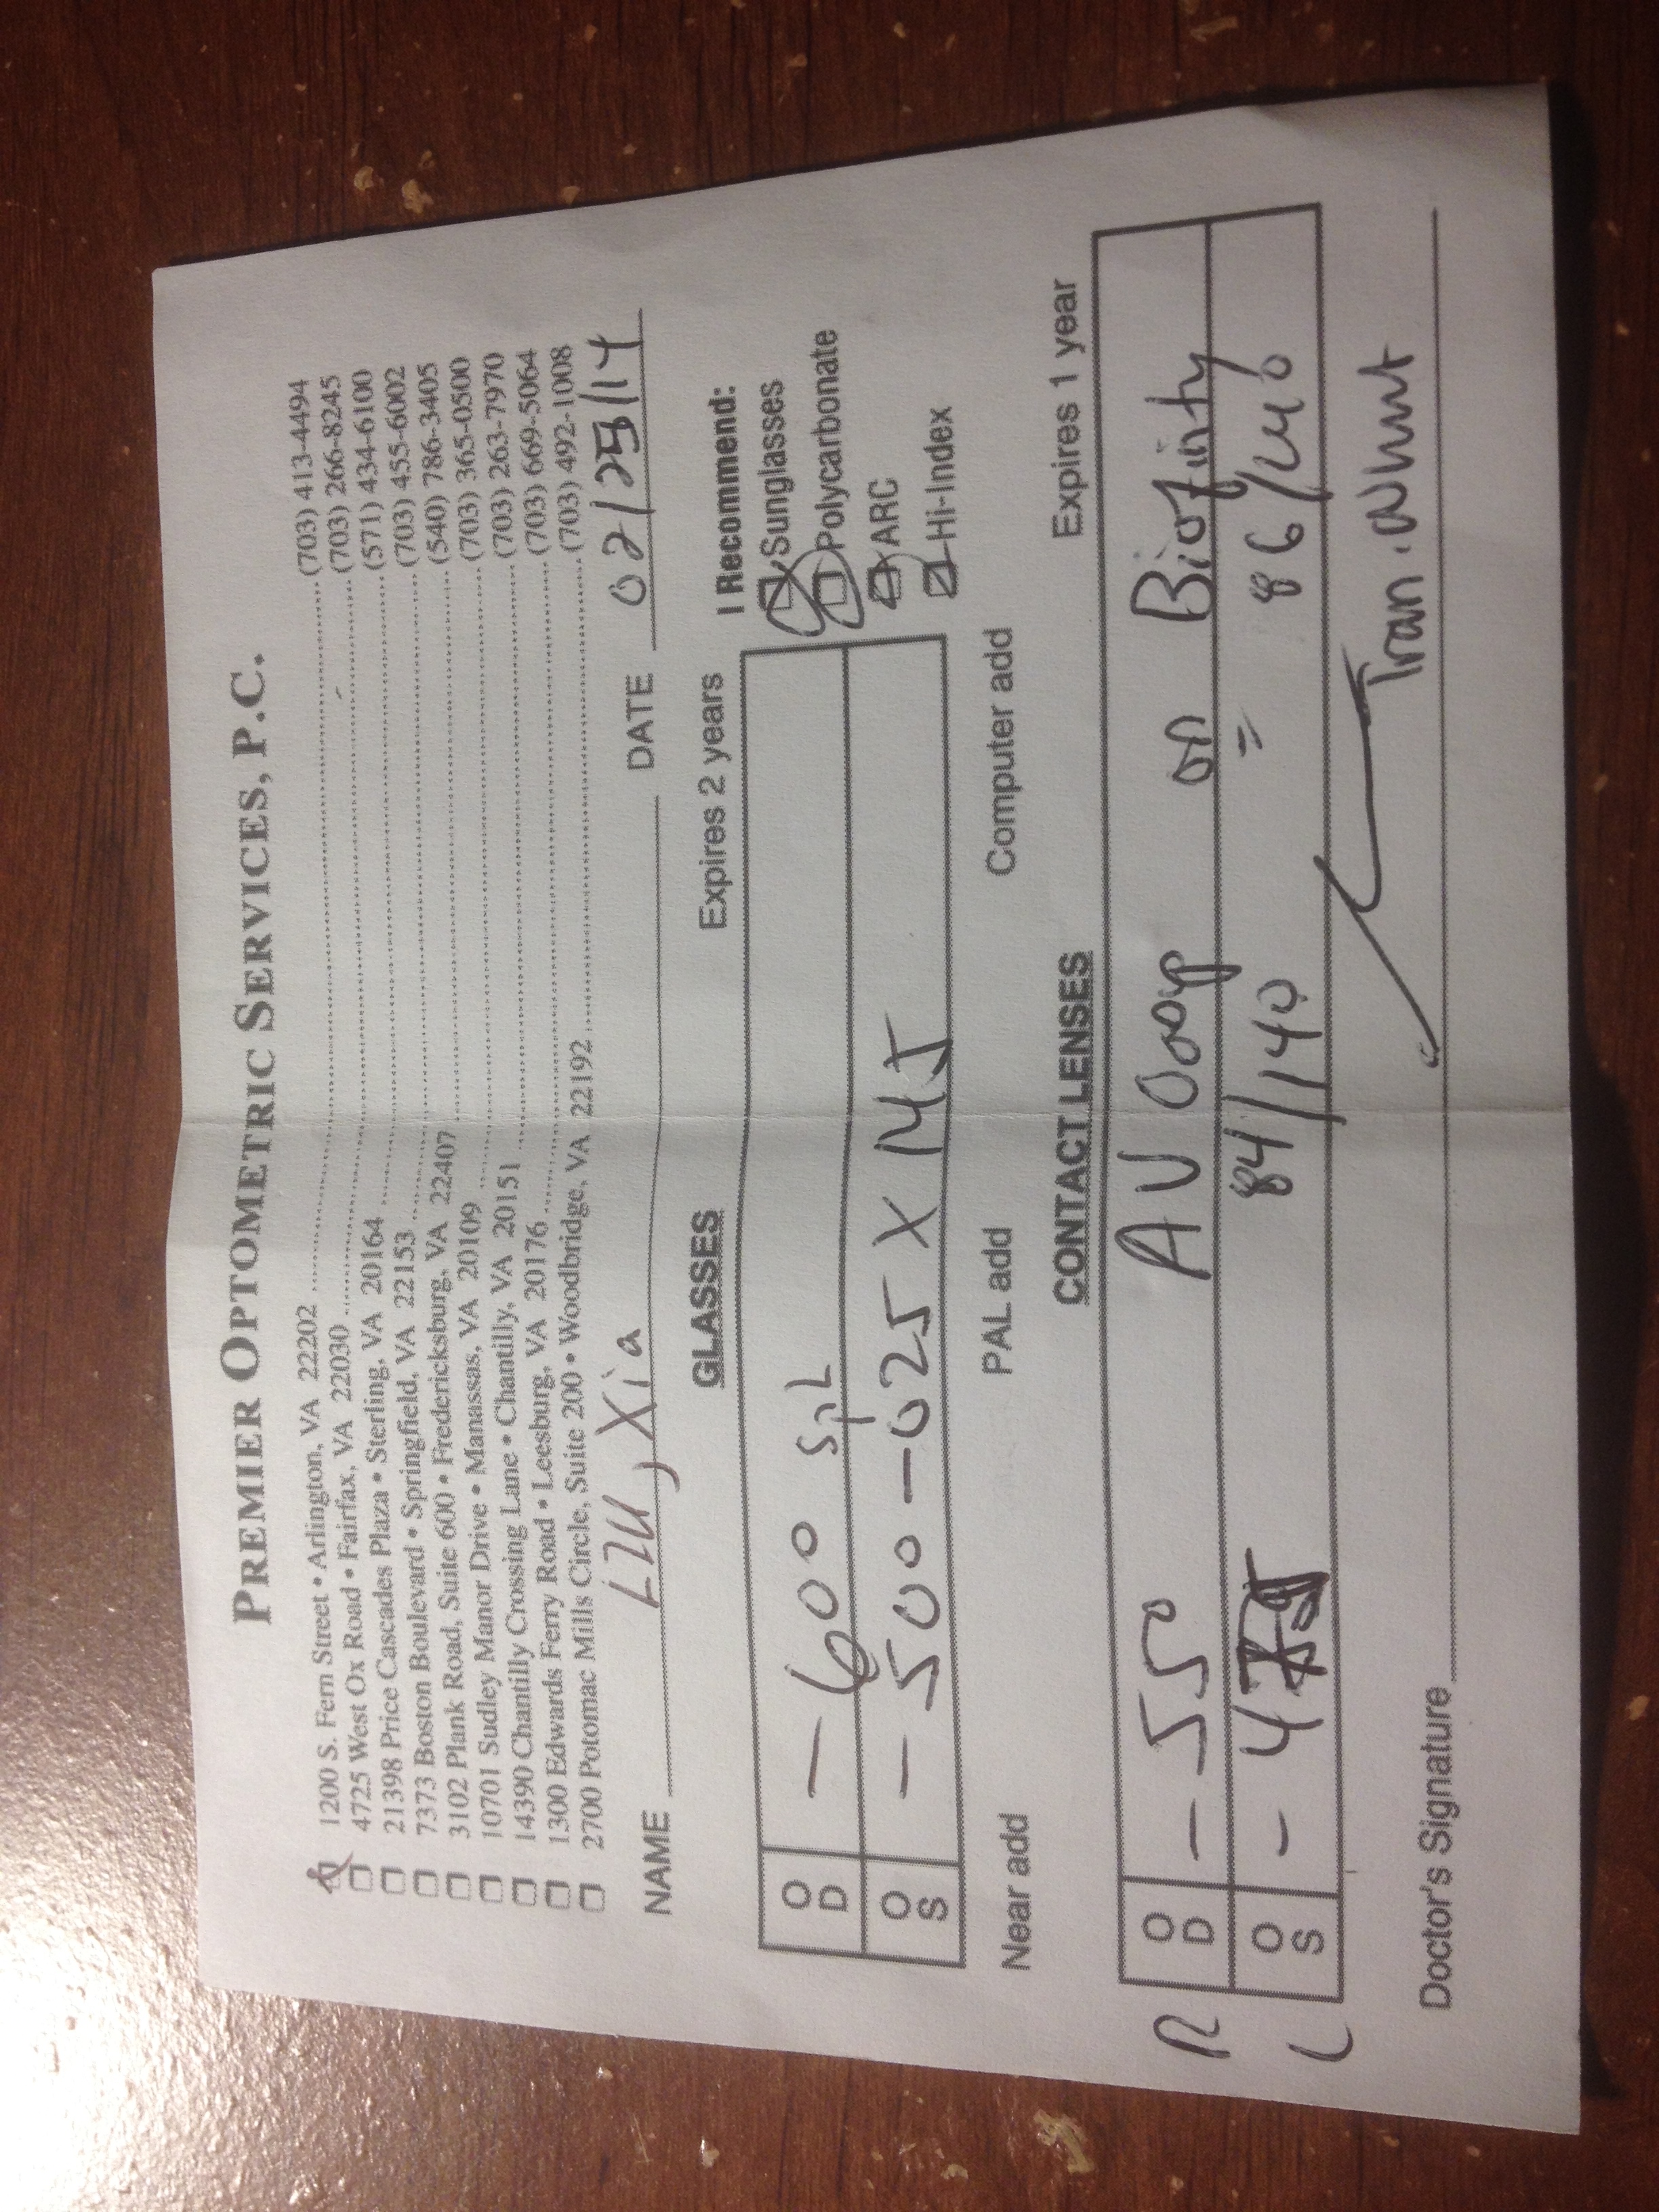 PREMIER OPTOMETRIC SERVICES, P.C.
1200 S. Fern Street • Arlington, VA 22202 (703) 413-4494
4725 West Ox Road • Fairfax, VA 22030 (703) 266-8245
21398 Price Cascades Plaza • Sterling, VA 20164 (571) 434-6100
7373 Boston Boulevard • Springfield, VA 22153 (703) 455-6002
3102 Plank Road, Suite 600 • Fredericksburg, VA 22407 (540) 786-3405
10701 Sudley Manor Drive • Manassas, VA 20109 (703) 365-0500
14390 Chantilly Crossing Lane • Chantilly, VA 20151 (703) 263-7970
1300 Edwards Ferry Road • Leesburg, VA 20176 (703) 669-5064
2700 Potomac Mills Circle, Suite 200 • Woodbridge, VA 22192 (703) 492-1008
NAME Xia DATE 02/25/14
GLASSES Expires 2 years I Recommend:
OD -600 Sunglasses
Polycarbonate
OS -500 -025 X ARC
Hi-Index
Near add PAL add Computer add
CONTACT LENSES Expires 1 year
R OD -550 AV or Biofinity
L OS -4 84/140 = 86/140
Tran
Doctor's Signature